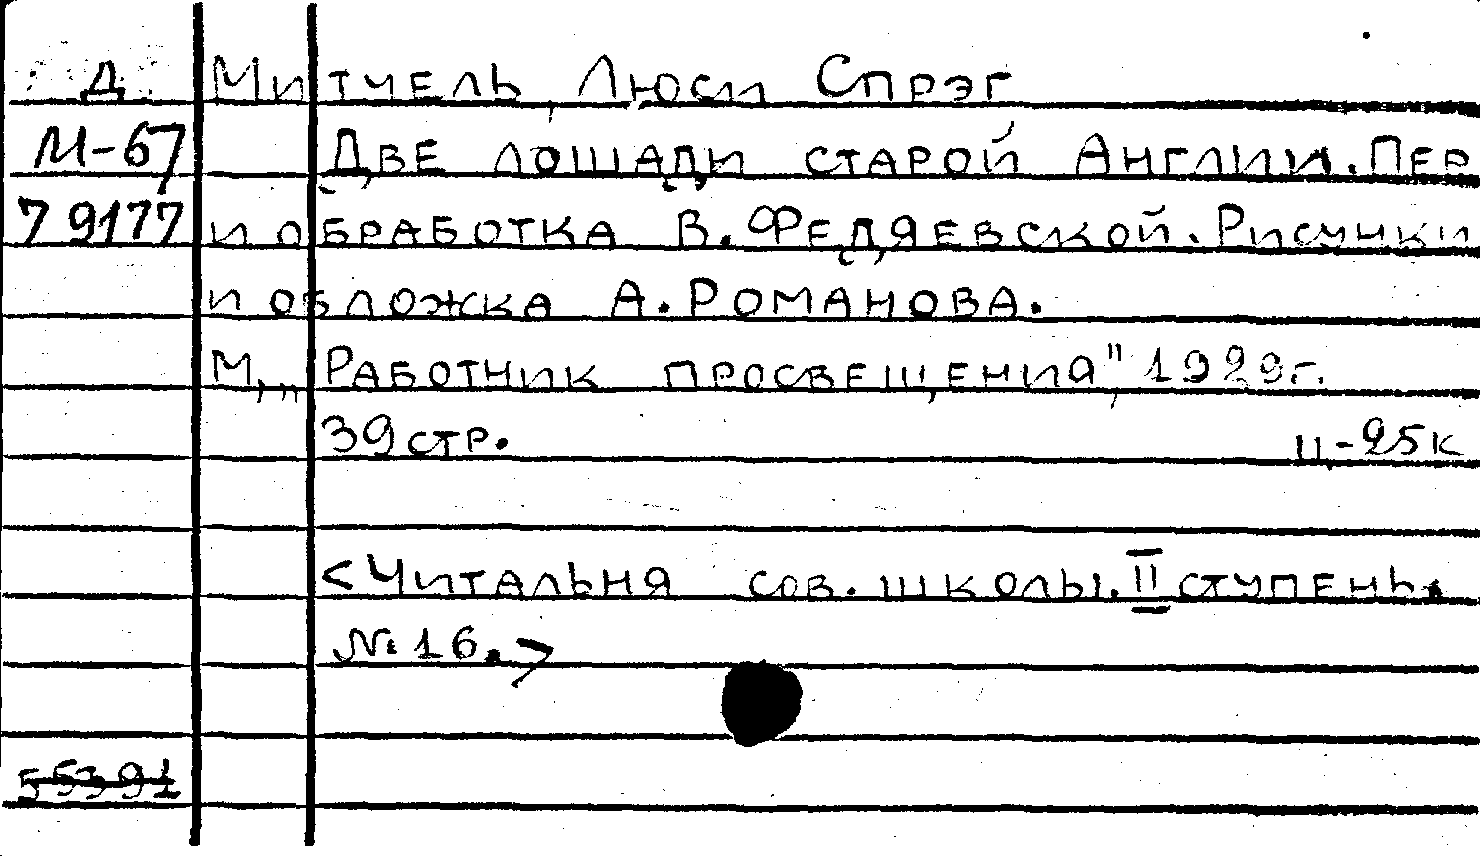 Д Митчель, Люси Спрэг
М-67 Две лошади старой Англии. Пер
79177 и обработка В. Федяевской. Рисунки
и обложка А. Романова.
М., „Работник просвещения", 1929г.
39 стр. ц.-25к
<Читальня сов. школы. II ступень.
№ 16.>
55391